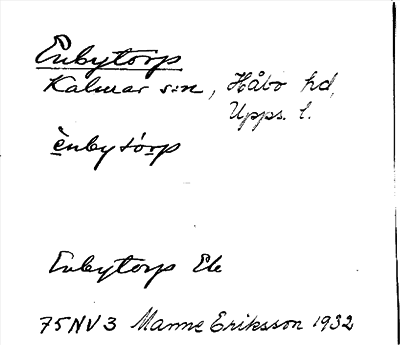 Enbytorp
Kalmar sn, Håbo hd,
Upps. l.
ènbytórp
Enbytorp Ek
75NV3 Manne Eriksson 1932